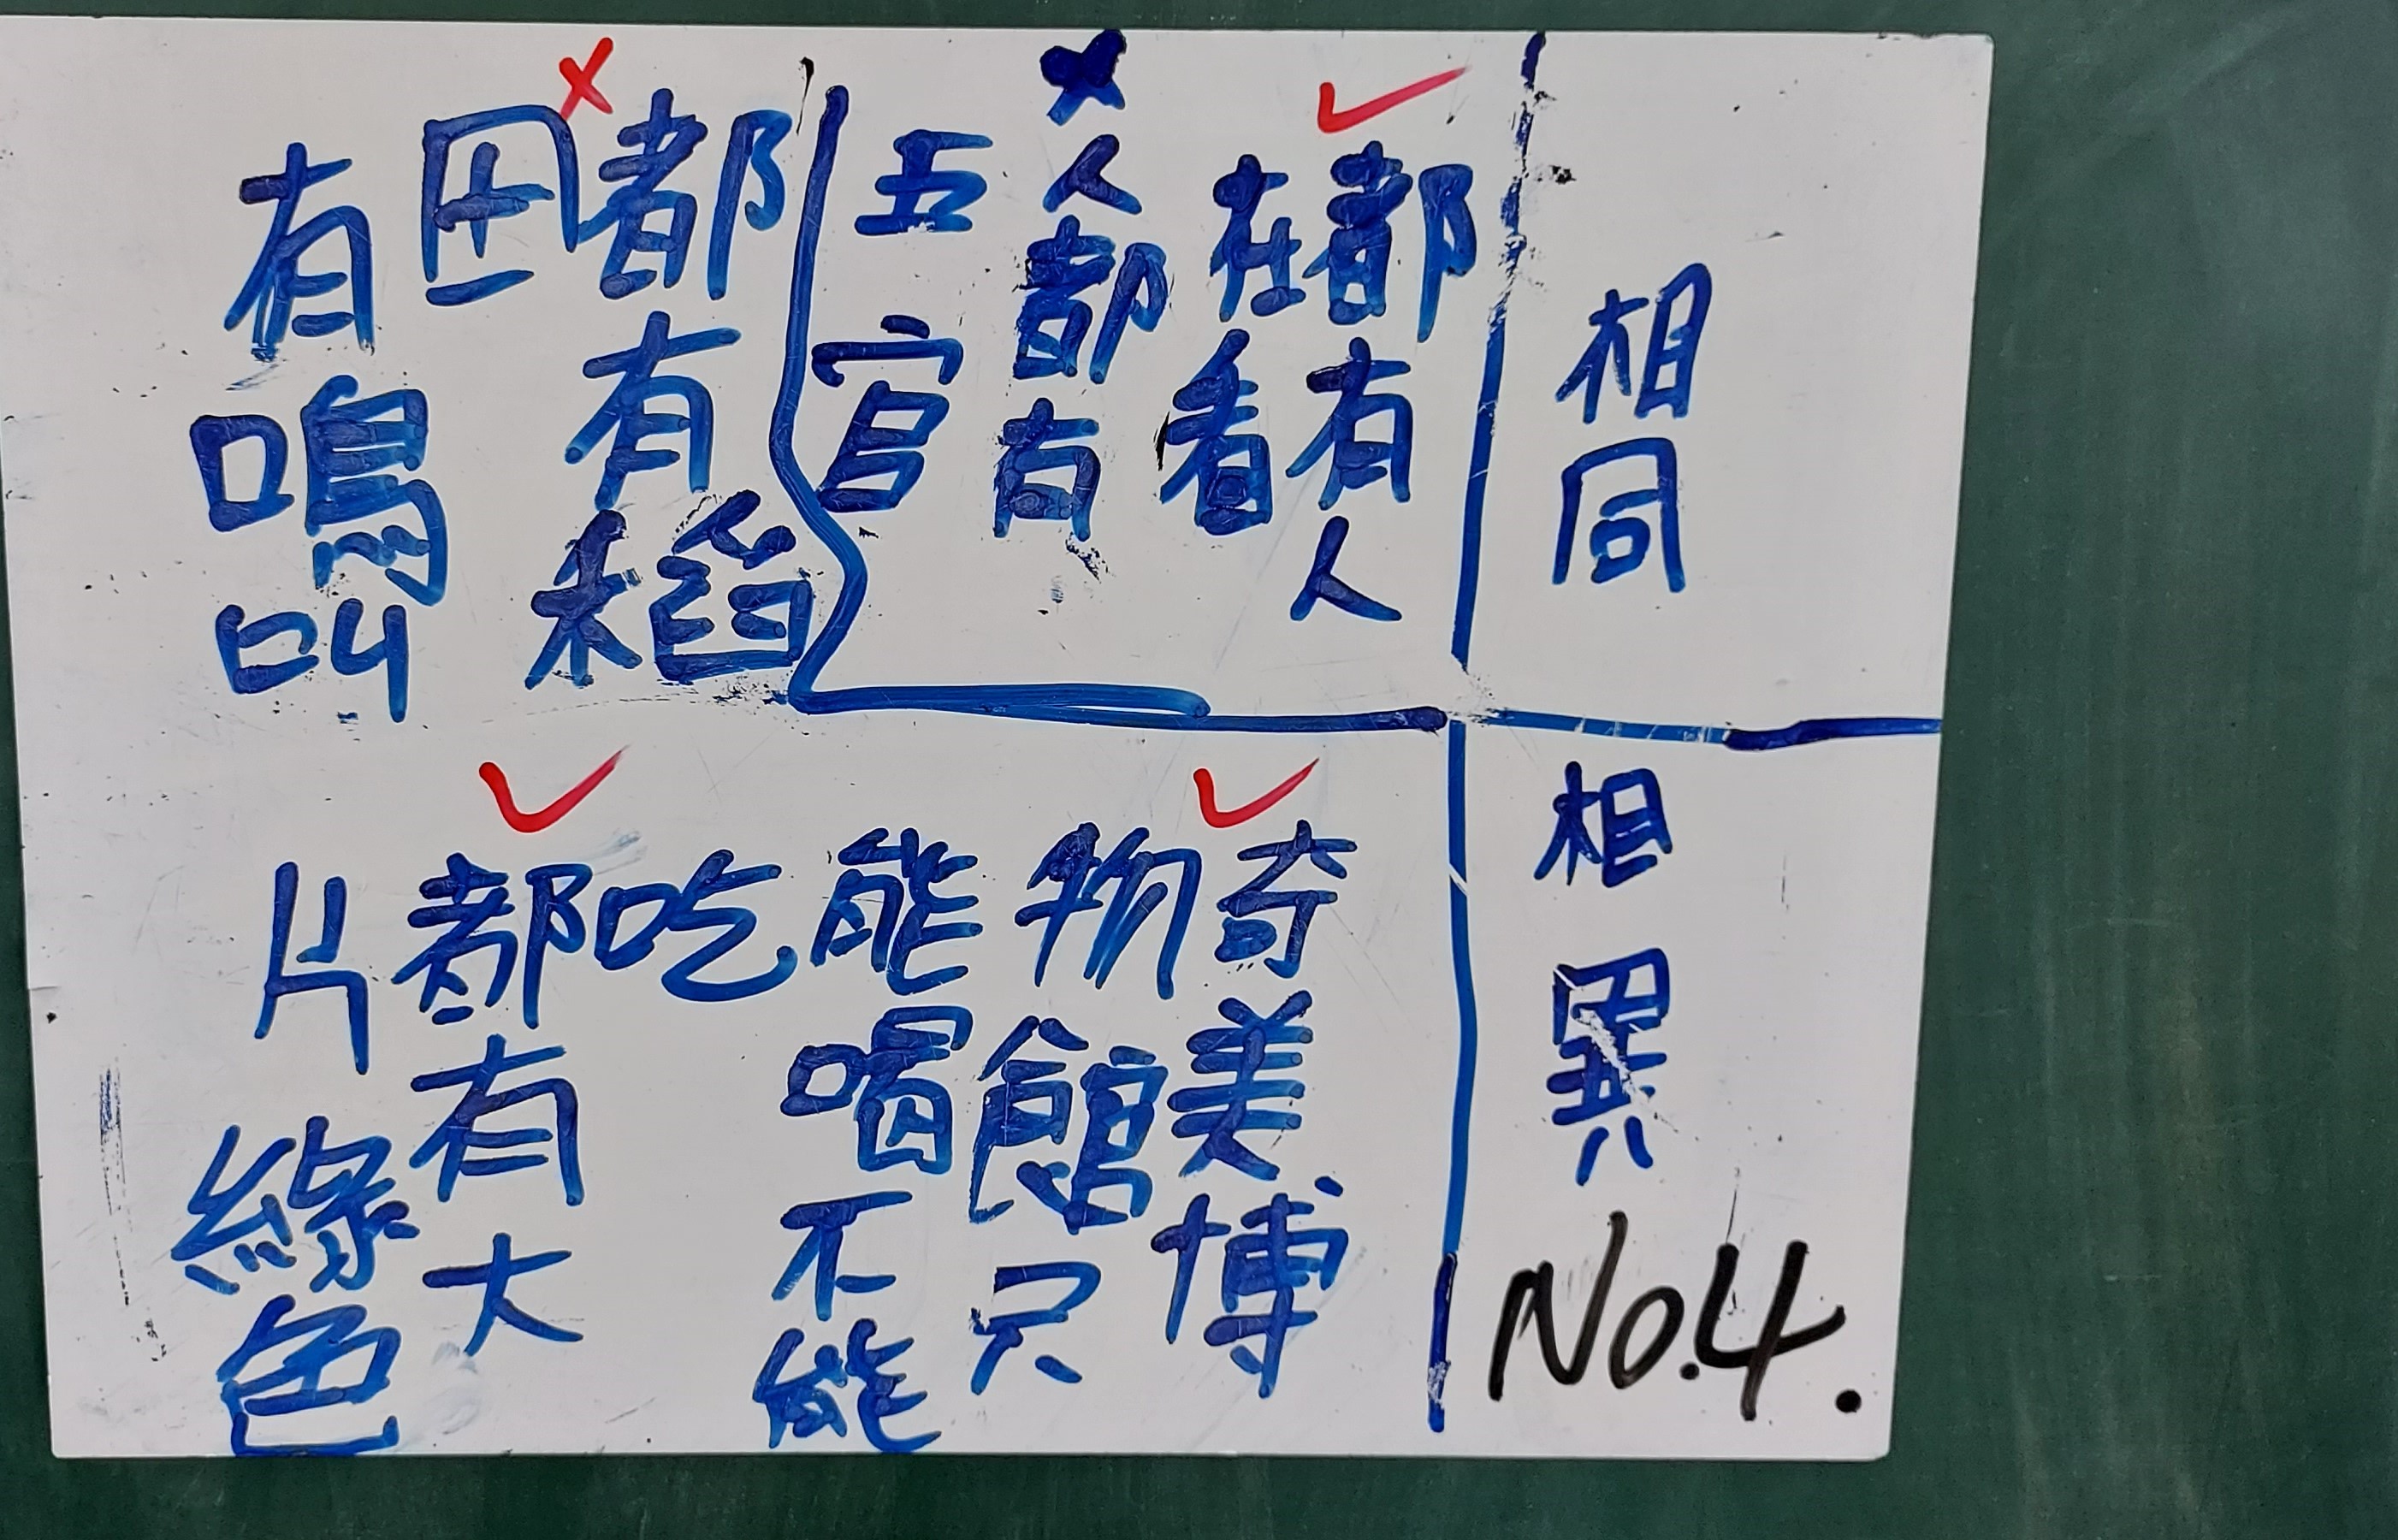 相同
都有人
在看
人都有
五官
都有稻
田
有鳴叫
相異
No.4.
奇美博
物館只
能喝不能
吃
都有大
片綠色